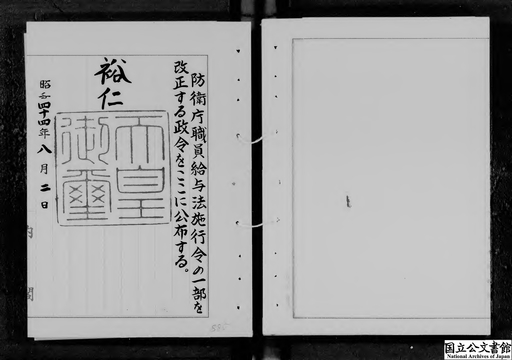 防衛庁職員給与法施行令の一部を
改正する政令をここに公布する。
裕仁
天皇
御璽
昭和四十四年八月二日
内閣
国立公文書館
National Archives of Japan